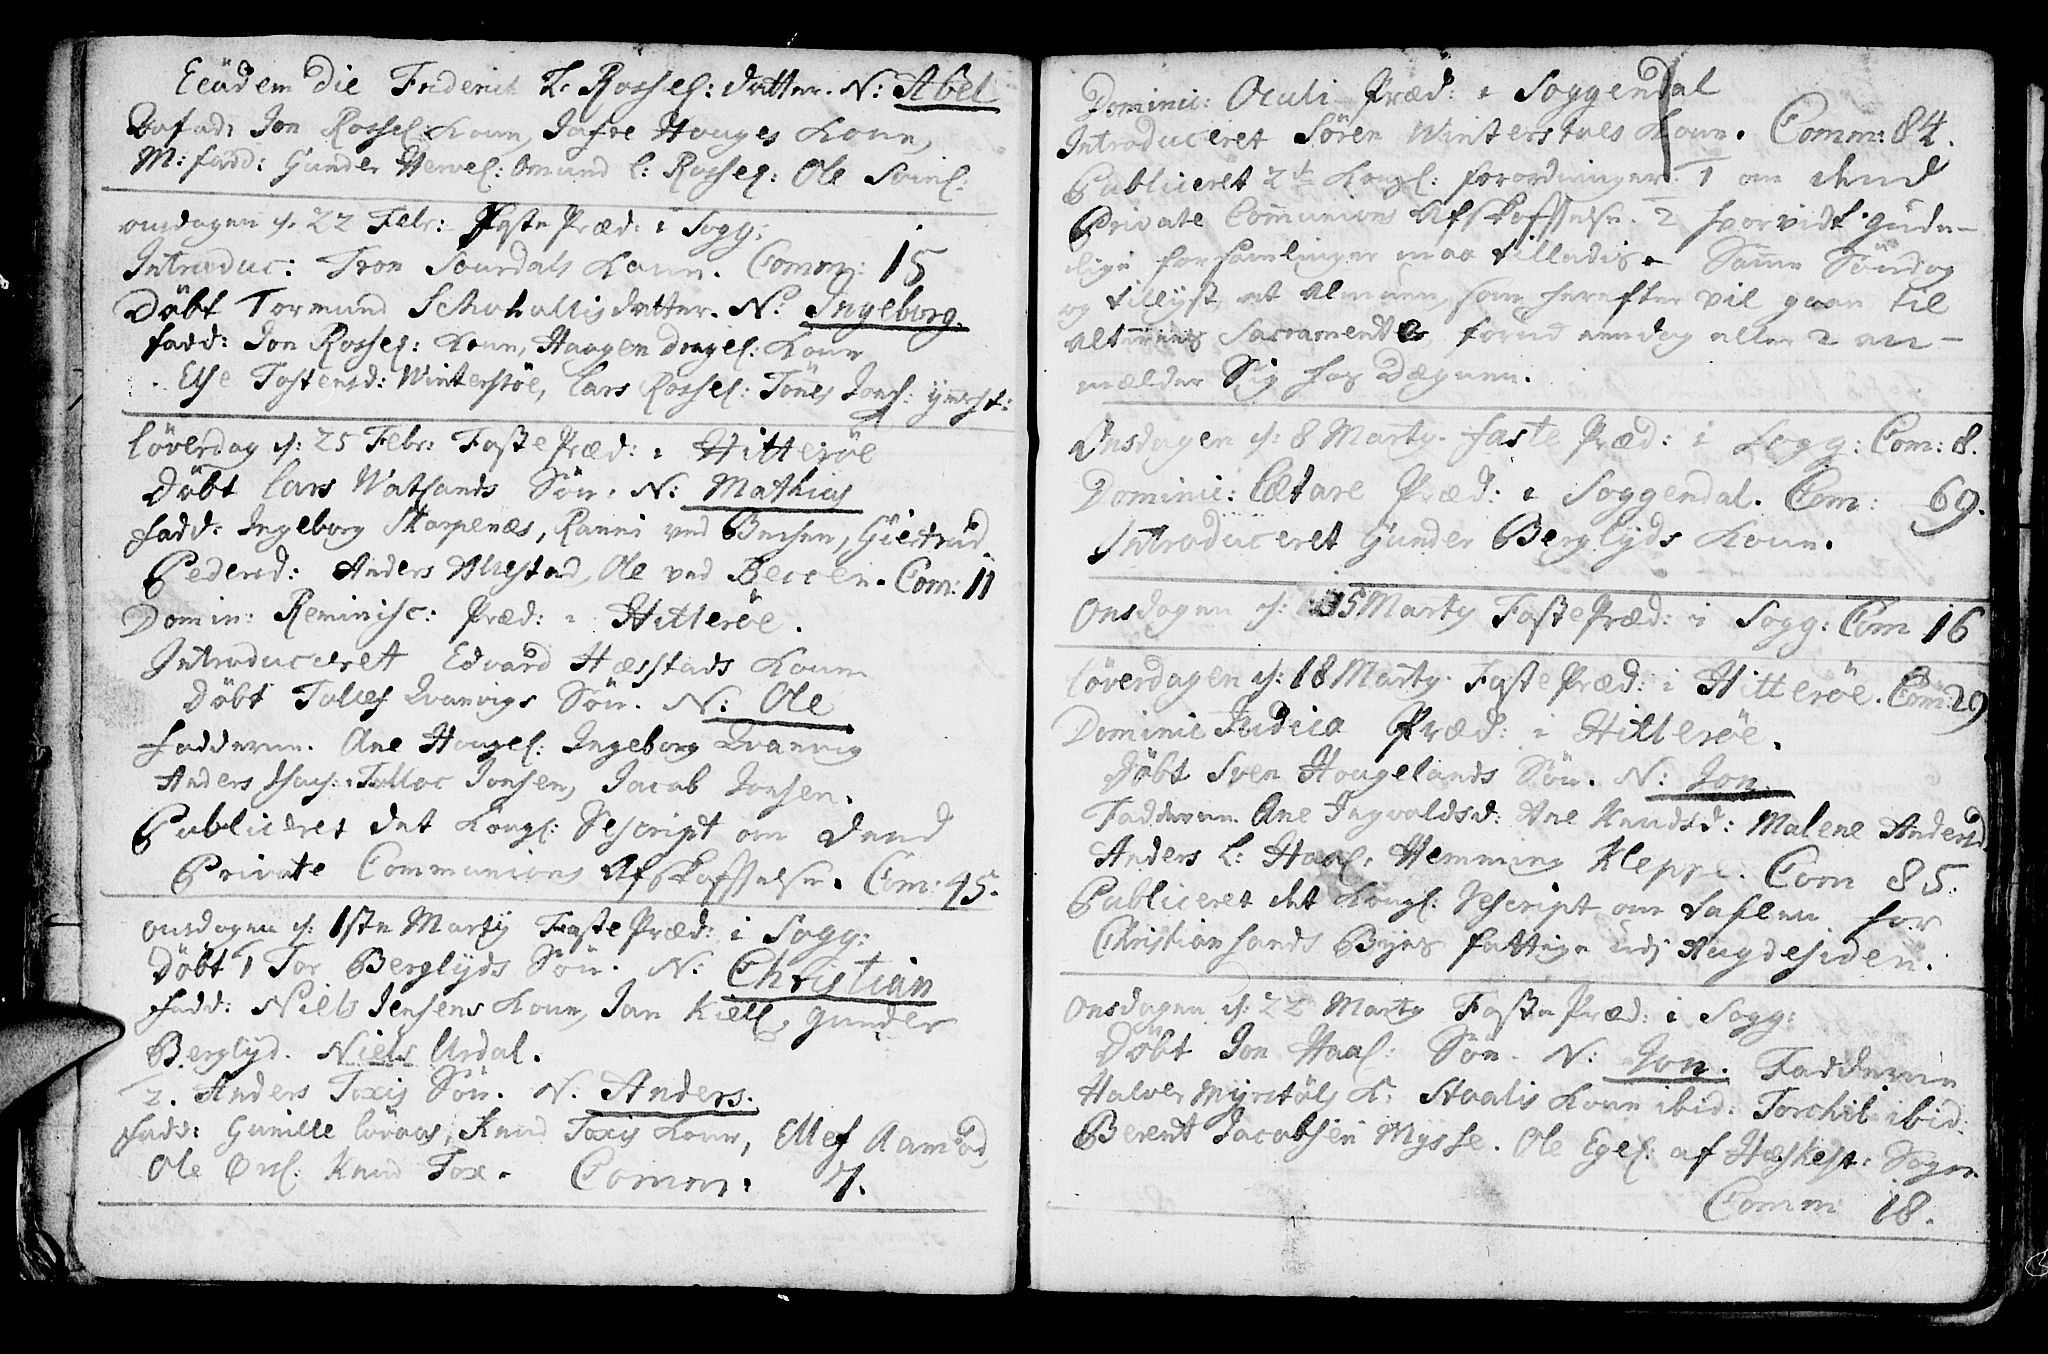 Eeüdem Die Friderich L. Rosseſ: datter. N: Abel
Ion Rosseſ: Kone, Hauges Kone,
M: fadd: Gunder Omund L: Rosseſ: Ole
onsdagen d. 22 Febr: Faste Præd: i Sogg:
Introduc: Tron Sourdals Kone. Comm: 15
Döbt Tormund datter. N: Ingeborg.
fadd: Ion Rosseſ: Kone, Haagen Kone
Else Tostensd: Winterstöe, Lars Rosseſ: Tönes
Löverdag d: 25 Febr: Faste Præd: i Hitteröe
Döbt Lars Watlands Sön. N: Mathias
fadd: Ingeborg Skarpenæs, Ranni ved Giertrud
Pedersd: Anders Ole ved Beccen. Com: 11
Domin: Reminisc: Præd: i Hitteröe.
Introduceret Edvard Hæsstads Kone
Döbt Qvanvigs Sön. N: Ole
Fadderne. Ane Hougeſ: Ingeborg Qvanvig
Anders Tolloc Jonsen, Jacob Jonsen.
Publiceret det Kongſ: Rescript om dend
Private Communions Afskaffelse. Com: 45.
onsdagen d: 1ste Marty Faste Præd: i Sogg:
Döbt 1 Tor Berglyds Sön. N: Christian
fadd: Niels Jensens Kone, Jan Kielſ, gunder
Berglyd. Niels Urdal.
2. Anders Toxis Sön. N: Anders.
fadd: Gunille Löraas, Knud Toxis Kone, Ellef Aamod,
Ole Knud Tox. Comm: 7.
Dominic: Oculi Præd: i Soggendal
Introduceret Sören Winterstöes Kone. Comm: 84.
Publiceret 2de Kongſ: forordninger. 1 om dend
Private Communions Afskaffelse. 2 hvorvidt gude-
lige forsamlinger maa tilladis. Samme Söndag
og tillyst, at Almuen, som herefter vil gaae til
Altterens Sacramente, forud en dag eller 2 an-
mælder Sig hos Degnen.
Onsdagen d: 8 Marty. faste Præd: i Sogg: Com: 8.
Dominic: Lætare Præd: i Soggendal. Com: 69.
Introduceret Gunder Berglyds Kone.
Onsdagen d: 15 Marty Faste Præd: i Sogg: Com 16
Löverdagen d: 18 Marty. Faste Præd: i Hitteröe. Com: 29
Dominic Judica Præd: i Hitteröe.
Döbt Sven Hougelands Sön. N: Jon.
Fadderne. Ane Ingvaldsd: Ane Knudsd: Malene Andersd
Anders L: Haaſ: Hemming Kleppe. Com 85.
Publiceret det Kongſ: Rescript om Taflen for
Christiansands Byes fattige udj Augdesiden.
Onsdagen d: 22 Marty Faste Præd: i Sogg:
Döbt Jon Haaſ: Sön. N: Jon. Fadderne
Halvor Myrstöls K: Staalis Kone ibid: Torchil ibid:
Berent Jacobsen Mysse. Ole Egeſ: af Hæskest: Sogn.
Comm 18.